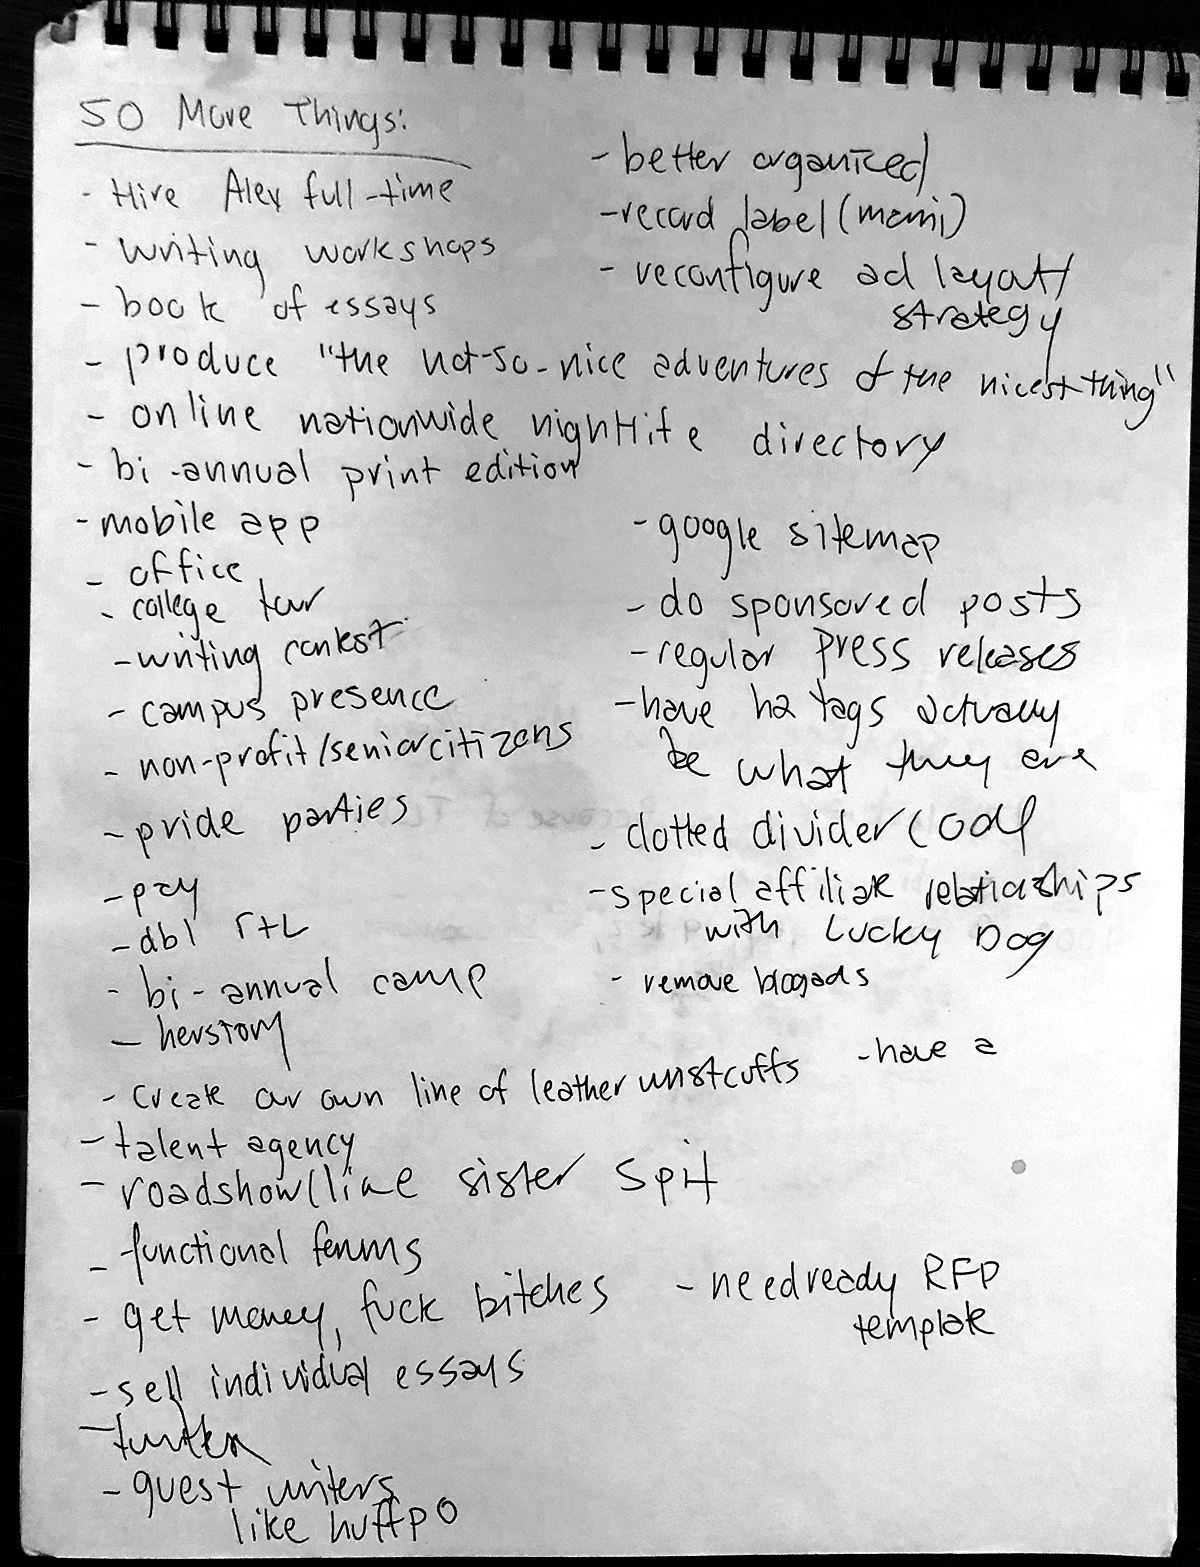 50 More Things:
- Hire Alex full-time
- writing workshops
- book of essays
- better organized
- record label (mami)
- reconfigure ad layout/
strategy
- produce "the not-so-nice adventures of the nicest thing"
- online nationwide nightlife directory
- bi-annual print edition
- mobile app
- office
- college tour
- writing contest
- campus presence
- non-profit/senior citizens
- pride parties
- pay
- dbl r+L
- bi-annual camp
- herstory
- google sitemap
- do sponsored posts
- regular press releases
- have h2 tags actually
be what they are
- dotted divider code
- special affiliate relationships
with Lucky Dog
- remove blogads
- create our own line of leather wristcuffs
- have a
- talent agency
- roadshow/like sister spit
- functional forums
- get money, fuck bitches
- need ready RFP
template
- sell individual essays
- guest writers
like huffpo